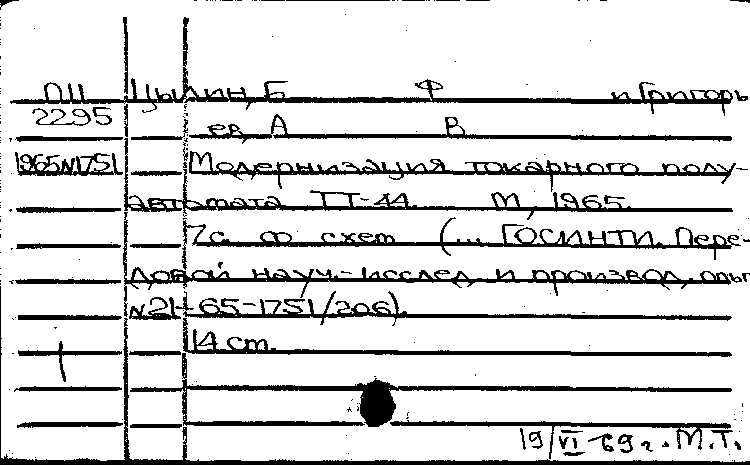 ПЦ Цылин, Б Ф и Григорь
2295 ев, А В
1965N1751 Модернизация токарного полу-
автомата ТТ-44. М, 1965.
7с. со схем (... ГОСИНТИ. Пере-
довой науч.-исслед. и производ. опыт
N21-65-1751/206).
14 cm.
19/VI-69 г. М.Т.